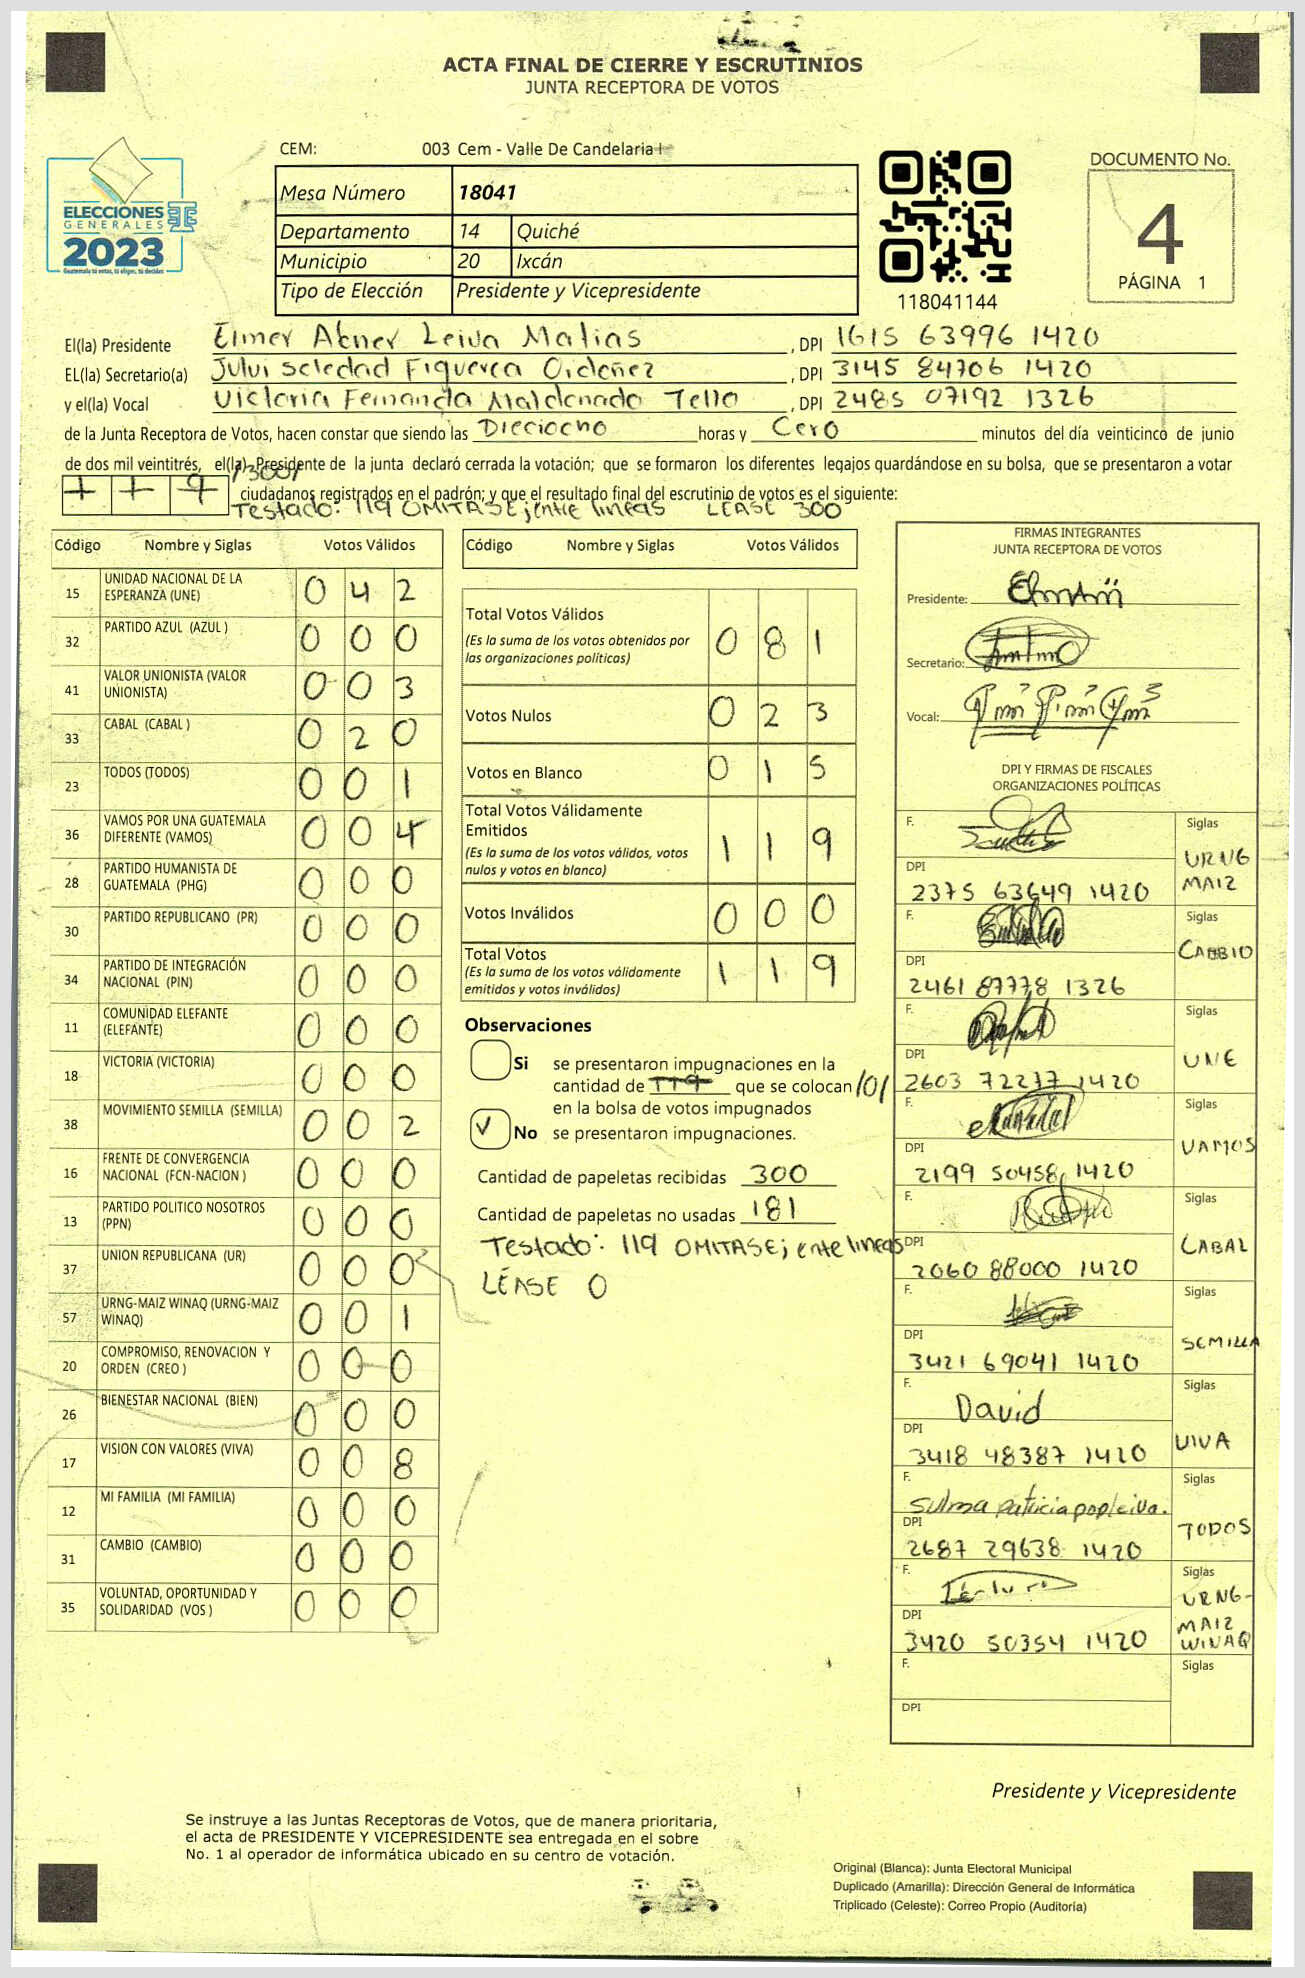 ACTA FINAL DE CIERRE Y ESCRUTINIOS
JUNTA RECEPTORA DE VOTOS
CEM: 003 Cem - Valle De Candelaria I
Mesa Número 18041
Departamento 14 Quiché
Municipio 20 Ixcán
Tipo de Elección Presidente y Vicepresidente
ELECCIONES
GENERALES
2023
Guatemala tú votas, tú eliges, tú decides
118041144
DOCUMENTO No.
4
PÁGINA 1
El(la) Presidente Elmer Abner Leiva Matias, DPI 1615 63996 1420
EL(la) Secretario(a) Jului Soledad Figueroa Ordoñez, DPI 3145 84706 1420
y el(la) Vocal Victoria Fernanda Maldonado Tello, DPI 2485 07192 1326
de la Junta Receptora de Votos, hacen constar que siendo las Dieciocho horas y Cero minutos del día veinticinco de junio
de dos mil veintitrés, el(la) Presidente de la junta declaró cerrada la votación; que se formaron los diferentes legajos guardándose en su bolsa, que se presentaron a votar
/300/
1 1 9 ciudadanos registrados en el padrón; y que el resultado final del escrutinio de votos es el siguiente:
Testado: 119 OMITASE; entre lineas LEASE 300
Código Nombre y Siglas Votos Válidos
15 UNIDAD NACIONAL DE LA ESPERANZA (UNE) 0 4 2
32 PARTIDO AZUL (AZUL ) 0 0 0
41 VALOR UNIONISTA (VALOR UNIONISTA) 0 0 3
33 CABAL (CABAL ) 0 2 0
23 TODOS (TODOS) 0 0 1
36 VAMOS POR UNA GUATEMALA DIFERENTE (VAMOS) 0 0 4
28 PARTIDO HUMANISTA DE GUATEMALA (PHG) 0 0 0
30 PARTIDO REPUBLICANO (PR) 0 0 0
34 PARTIDO DE INTEGRACIÓN NACIONAL (PIN) 0 0 0
11 COMUNIDAD ELEFANTE (ELEFANTE) 0 0 0
18 VICTORIA (VICTORIA) 0 0 0
38 MOVIMIENTO SEMILLA (SEMILLA) 0 0 2
16 FRENTE DE CONVERGENCIA NACIONAL (FCN-NACION ) 0 0 0
13 PARTIDO POLITICO NOSOTROS (PPN) 0 0 0
37 UNION REPUBLICANA (UR) 0 0 0
57 URNG-MAIZ WINAQ (URNG-MAIZ WINAQ) 0 0 1
20 COMPROMISO, RENOVACION Y ORDEN (CREO ) 0 0 0
26 BIENESTAR NACIONAL (BIEN) 0 0 0
17 VISION CON VALORES (VIVA) 0 0 8
12 MI FAMILIA (MI FAMILIA) 0 0 0
31 CAMBIO (CAMBIO) 0 0 0
35 VOLUNTAD, OPORTUNIDAD Y SOLIDARIDAD (VOS ) 0 0 0
Código Nombre y Siglas Votos Válidos
Total Votos Válidos 0 8 1
(Es la suma de los votos obtenidos por
las organizaciones politicas)
Votos Nulos 0 2 3
Votos en Blanco 0 1 5
Total Votos Válidamente
Emitidos 1 1 9
(Es la suma de los votos válidos, votos
nulos y votos en blanco)
Votos Inválidos 0 0 0
Total Votos 1 1 9
(Es la suma de los votos válidamente
emitidos y votos inválidos)
Observaciones
Si se presentaron impugnaciones en la
cantidad de 119 que se colocan /0/
en la bolsa de votos impugnados
✓ No se presentaron impugnaciones.
Cantidad de papeletas recibidas 300
Cantidad de papeletas no usadas 181
Testado: 119 OMITASE; ente lineas
LÉASE 0
FIRMAS INTEGRANTES
JUNTA RECEPTORA DE VOTOS
Presidente:
Secretario:
Vocal:
DPI Y FIRMAS DE FISCALES
ORGANIZACIONES POLÍTICAS
F. Siglas URNG MAIZ
DPI 2375 63649 1420
F. Siglas CAMBIO
DPI 2461 87778 1326
F. Siglas UNE
DPI 2603 72277 1420
F. Siglas VAMOS
DPI 2199 50458 1420
F. Siglas CABAL
DPI 2060 88000 1420
F. Siglas SEMILLA
DPI 3421 69041 1420
F. David Siglas VIVA
DPI 3418 48387 1420
F. Sulma patricia pop leiva. Siglas TODOS
DPI 2687 29638 1420
F. Siglas URNG-MAIZ WINAQ
DPI 3420 50354 1420
F. Siglas
DPI
Presidente y Vicepresidente
Se instruye a las Juntas Receptoras de Votos, que de manera prioritaria,
el acta de PRESIDENTE Y VICEPRESIDENTE sea entregada en el sobre
No. 1 al operador de informática ubicado en su centro de votación.
Original (Blanca): Junta Electoral Municipal
Duplicado (Amarilla): Dirección General de Informática
Triplicado (Celeste): Correo Propio (Auditoría)